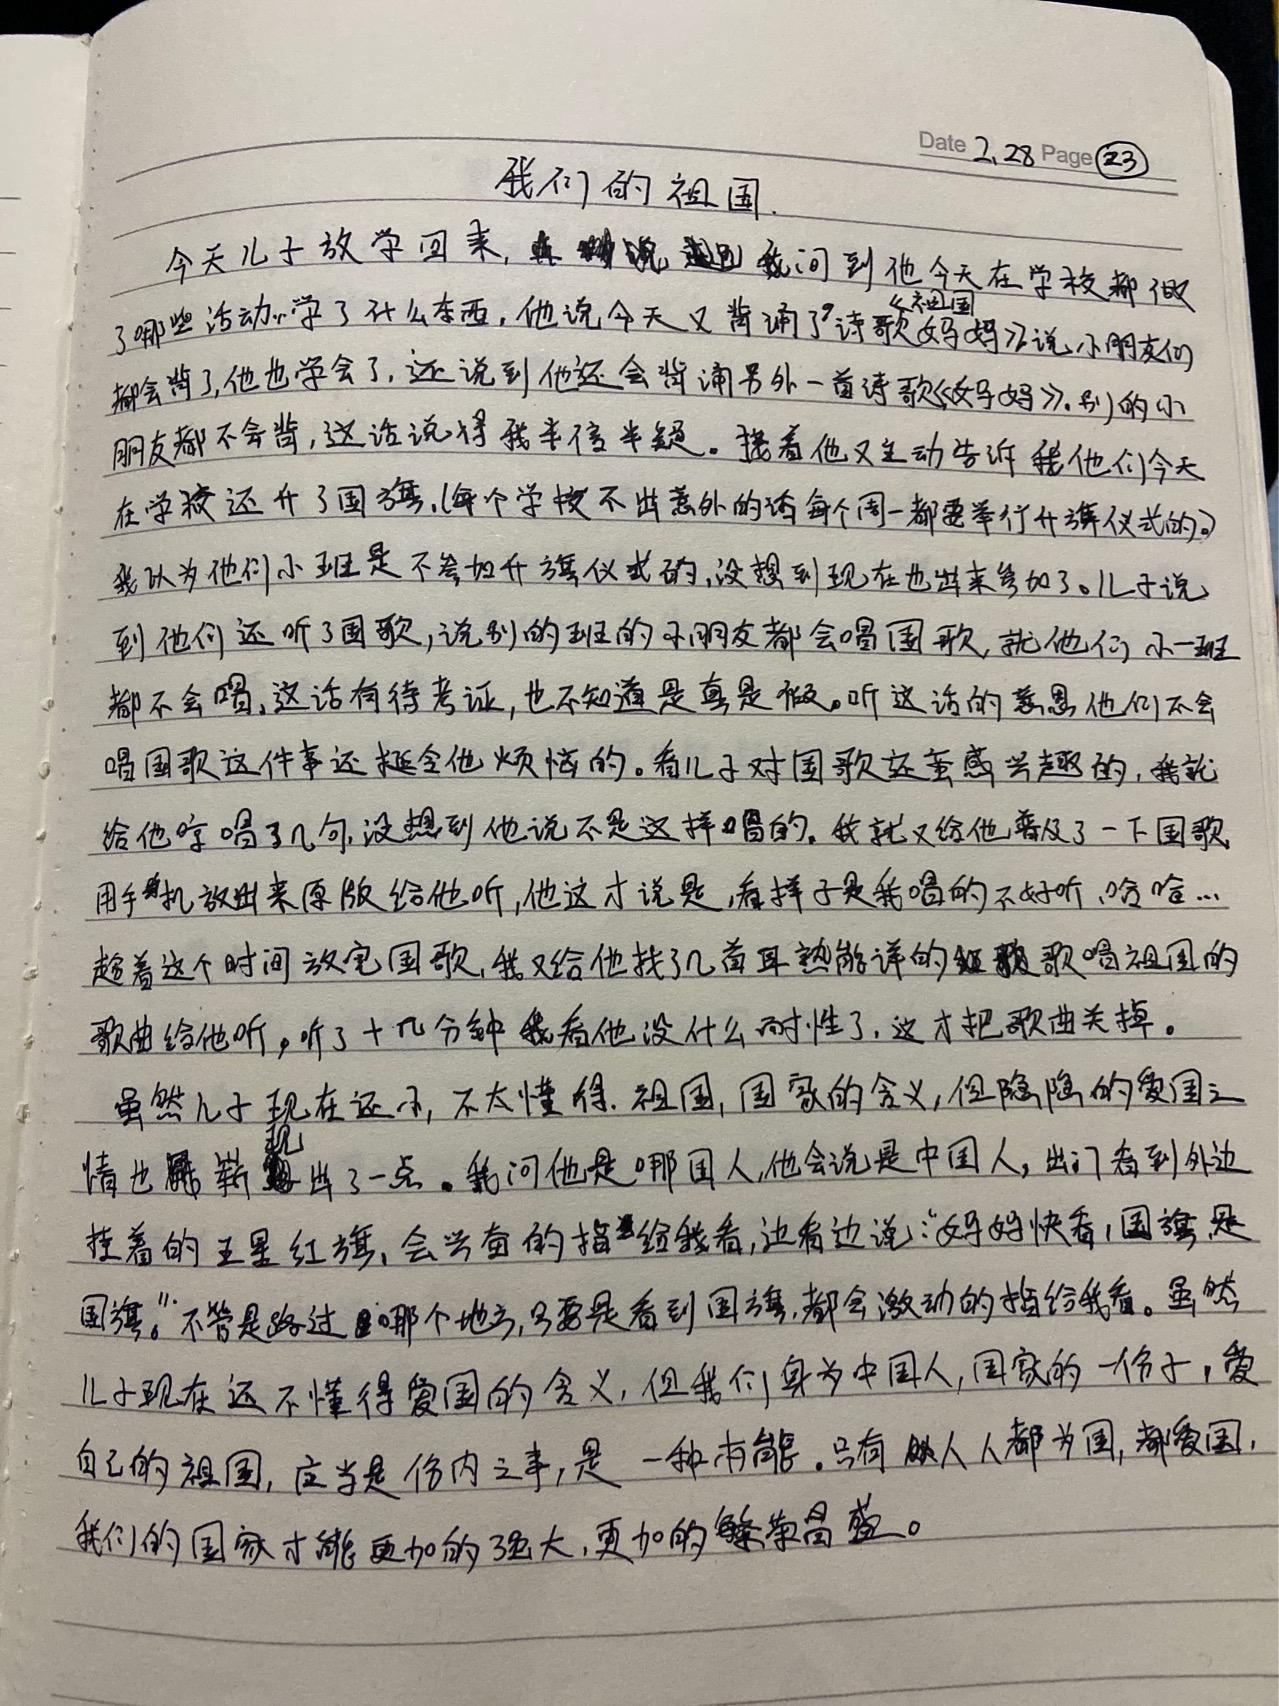 Date 2.28 Page 23
我们的祖国.
今天儿子放学回来, 我问到他今天在学校都做
了哪些活动,学了什么东西,他说今天又背诵了诗歌《祖国妈妈》,说小朋友们
都会背了,他也学会了,还说到他还会背诵另外一首诗歌《妈妈》.别的小
朋友都不会背,这话说得我半信半疑。接着他又主动告诉我他们今天
在学校还升了国旗,(每个学校不出意外的话每个周一都要举行升旗仪式的。)
我以为他们小班是不参加升旗仪式的,没想到现在也出来参加了。儿子说
到他们还听了国歌,说别的班的小朋友都会唱国歌,就他们小一班
都不会唱,这话有待考证,也不知道是真是假。听这话的意思他们不会
唱国歌这件事还挺令他烦恼的。看儿子对国歌还蛮感兴趣的,我就
给他哼唱了几句,没想到他说不是这样唱的.我就又给他普及了一下国歌,
用手机放出来原版给他听,他这才说是,看样子是我唱的不好听,哈哈…
趁着这个时间放完国歌,我又给他找了几首耳熟能详的歌唱祖国的
歌曲给他听,听了十几分钟我看他没什么耐性了,这才把歌曲关掉。
虽然儿子现在还小,不太懂得.祖国,国家的含义,但隐隐的爱国之
情也崭现出了一点。我问他是哪国人,他会说是中国人,出门看到外边
挂着的五星红旗,会兴奋的指给我看,边看边说:"妈妈快看,国旗,是
国旗。"不管是路过哪个地方,只要是看到国旗,都会激动的指给我看。虽然
儿子现在还不懂得爱国的含义,但我们身为中国人,国家的一份子,爱
自己的祖国,应当是份内之事,是一种本能.只有人人都为国,都爱国,
我们的国家才能更加的强大,更加的繁荣昌盛。